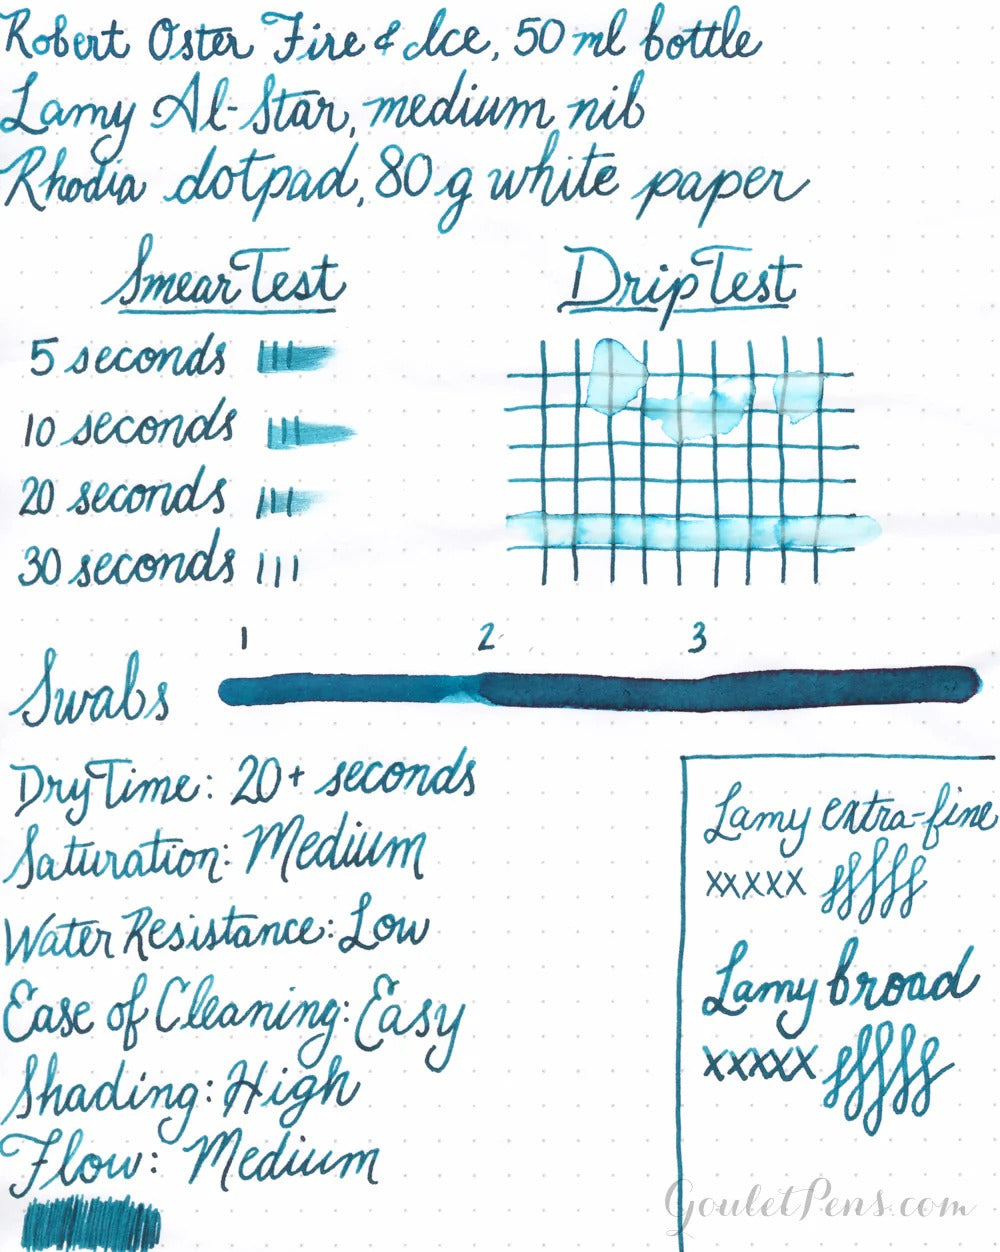 Robert Oster Fire & Ice, 50 ml bottle
Lamy Al-Star, medium nib
Rhodia dotpad, 80 g white paper
Smear Test
5 seconds
10 seconds
20 seconds
30 seconds
Drip Test
1 2 3
Swabs
Dry Time: 20+ seconds
Saturation: Medium
Water Resistance: Low
Ease of Cleaning: Easy
Shading: High
Flow: Medium
Lamy extra-fine
xxxxx fffff
Lamy broad
xxxxx fffff
GouletPens.com